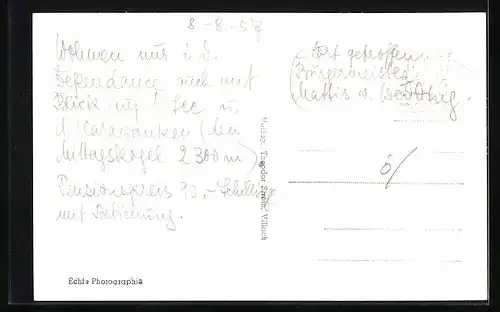 8.-8.-57
Wohnen nur i. d.
Dependance auch mit
Blick auf See u.
d. Karawanken (den
Mittagskogel 2300 m)
Pensionspreis 90.- Schilling
mit Bedienung.
dort getroffen:
Bürgermeister
Mattis v.
Verlag: Theodor Strein, Villach
Echte Photographie